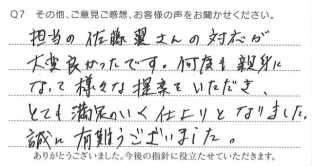 Q7 その他、ご意見ご感想、お客様の声をお聞かせください。
担当の佐藤翼さんの対応が
大変良かったです。何度も親身に
なって様々な提案をいただき、
とても満足のいく仕上りとなりました。
誠に有難うございました。
ありがとうございました。今後の指針に役立たせていただきます。